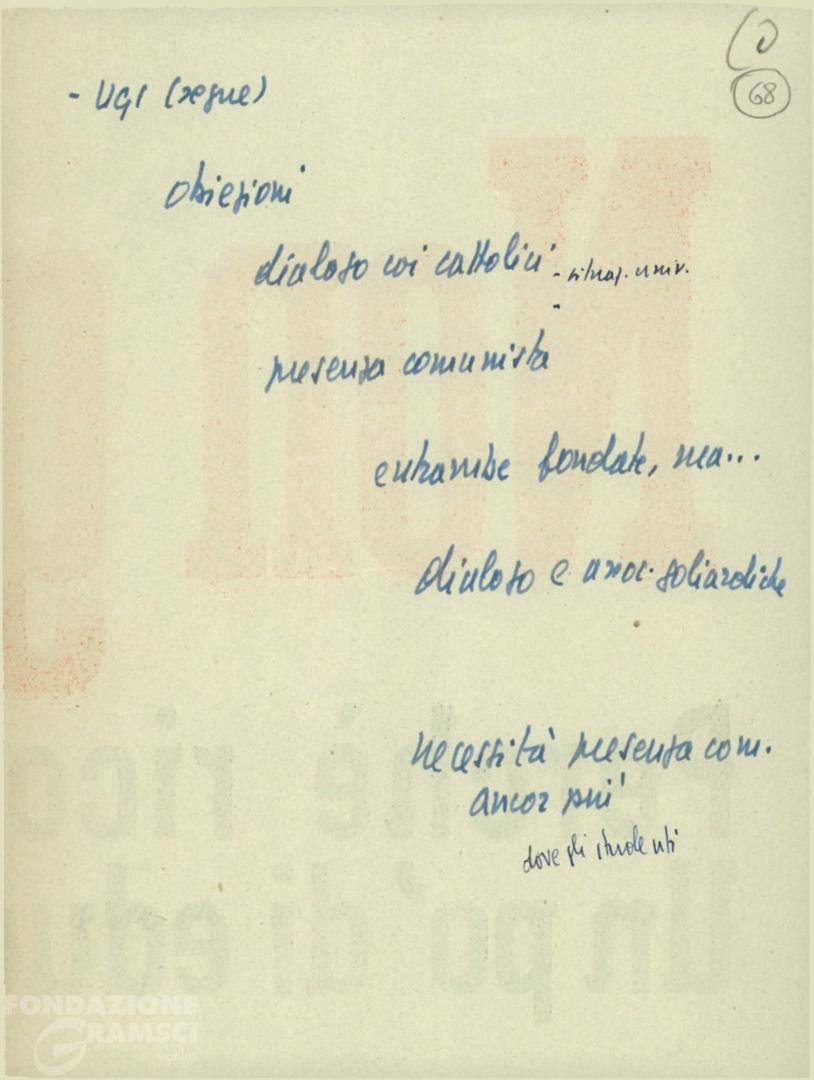 68
- UGI (segue)
obiezioni
dialogo coi cattolici - situaz. univ.
-
presenza comunista
entrambe fondate, ma...
dialogo e assoc. goliardiche
necessità presenza com.
ancor più
dove gli studenti
Perché rico
Un po' di edu
FONDAZIONE
GRAMSCI